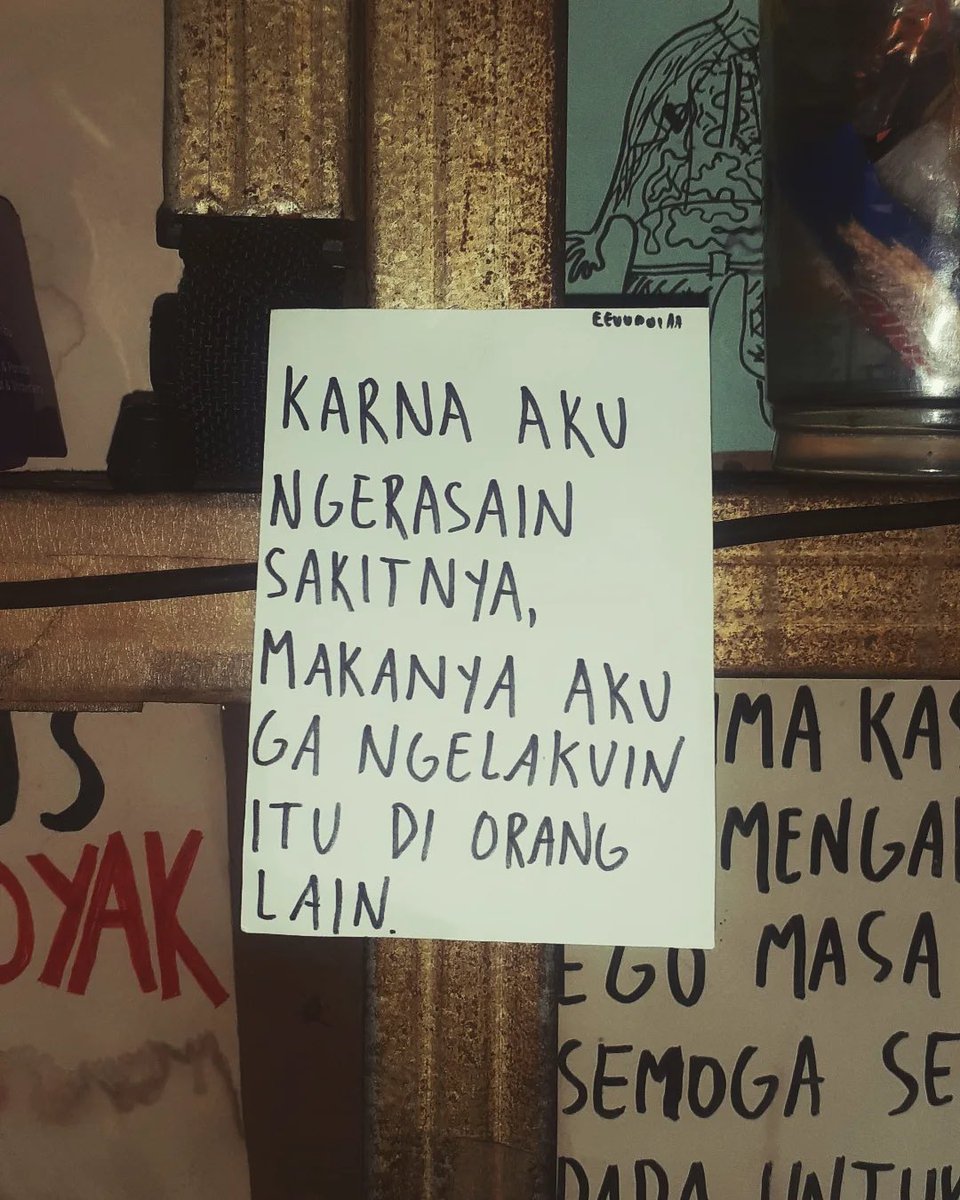 KARNA AKU
NGERASAIN
SAKITNYA,
MAKANYA AKU
GA NGELAKUIN
ITU DI ORANG
LAIN.
US
OYAK
IMA KAS
MENGA
EGO MASA
SEMOGA SE
PADA UNTUK